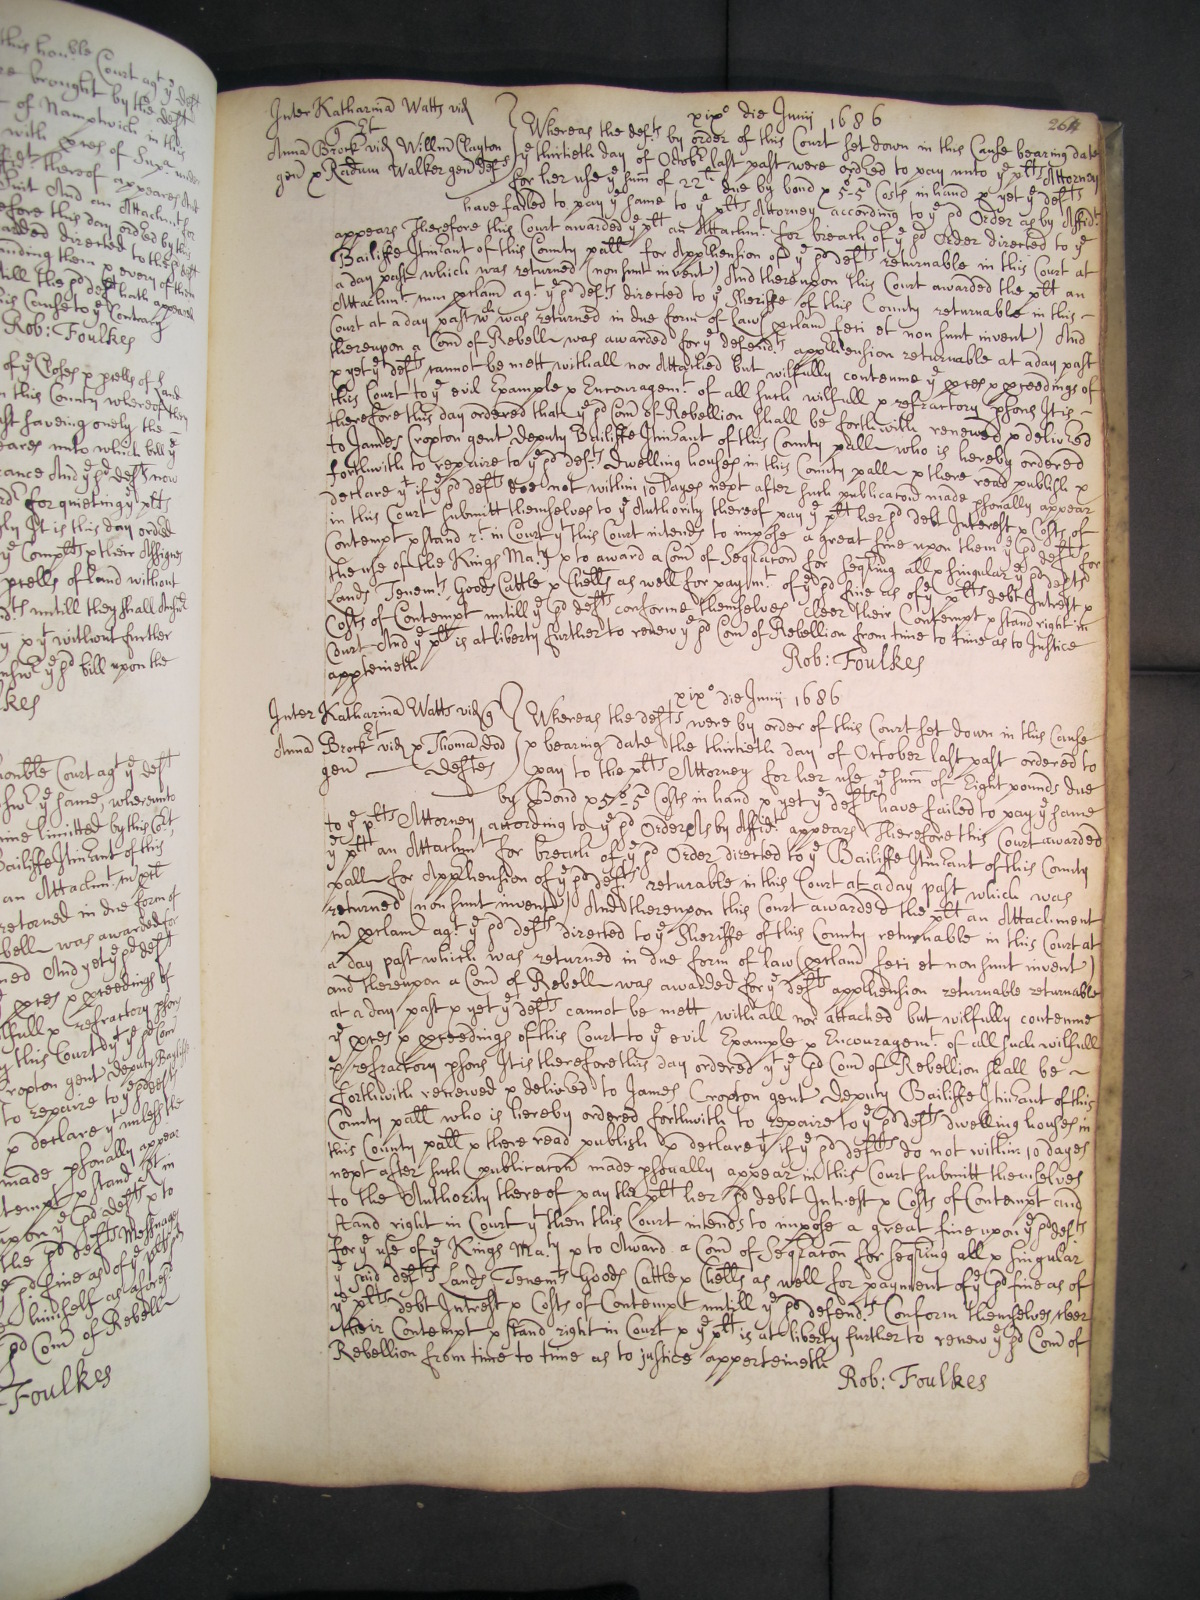 this hon:ble Court ag:t ye deft
brought by the deft
of Namptwich in this
with
thereof appeares
And an Attachm:t for
before this day ordred by this
directed to the
anding them & every of them
till the sd deft hath appeared
Cause to ye Contrary
Rob: Foulkes
of ye Closes & pcells of Land
in this County whereof they
haveing onely the
unto which bill ye
And ye sd defts now
for quieting ye plts
It is this day ordred
ye Complts & their Assignes
pcells of land without
untill they shall Answ:r
& yt without further
ye sd bill upon the
kes
honble Court agt ye deft
ye same whereunto
time limitted by this Court
Bailiffe Itinant of this
an Attachmt
retorned in due form of
bell was awarded for
And yet ye sd deft
pces & pceedings of
wilfull & refractory psons
this Court yt ye sd Com
Cropton gent deputy Bayliffe
to repaire to ye sd defts
& declare yt unless the
made psonally appear
tempt & stand rt in
upon ye sd defts & to
the sd defts Messuages
ye sd fine as of ye plts
himself as afores:d
sd Com of Rebell
Foulkes
264
xixo die Junij 1686
Inter Katharina Watts vid
q Et
Anna Brock vid Willm Clayton
gen & Radum Walker gen defts
Whereas the defts by order of this Court set down in this Cause bearing date
ye thirtieth day of Octobr last past were ordred to pay unto ye plts Attorney
for her use ye sum of 22li due by bond & 5s-5d Costs in hand & yet ye defts
have failed to pay ye same to ye plts Attorney according to ye sd Order as by Affidt
appears Therefore this Court awarded ye plt an Attachmt for breach of ye sd Order directed to ye
Bailiffe Itinant of this County pall for Apphension of ye sd defts returnable in this Court at
a day past which was returned (non sunt invent) And thereupon this Court awarded the plt an
Attachmt cum pclam agt ye sd defts directed to ye Sheriffe of this County returnable in this
Court at a day past wch was returned in due form of law (pclam feci et non sunt invent) And
thereupon a Com of Rebell was awarded for ye defendts apphension returnable at a day past
& yet ye defts cannot be mett withall nor Attached but wilfully contemne ye pces & pceedings of
this Court to ye evil Example & Encouragemt of all such wilfull & refractory psons It is
therefore this day ordered that ye sd Com of Rebellion shall be forthwith renewed & delivered
to James Cropton gent Deputy Bailiffe Itinant of this County pall who is hereby ordered
forthwith to repaire to ye sd defts dwelling houses in this County pall & there read publish &
declare yt if ye sd defts doe not within 10 dayes next after such publicacon made psonally appear
in this Court submitt themselves to ye Authority thereof pay ye plt her sd debt Interest & Costs of
Contempt & stand rt in Court yt this Court intends to impose a great fine upon them ye sd defts for
the use of the Kings Maty & to award a Com of Seqracon for seqring all & singular ye sd defts
Lands Tenemts Goods Cattle & Chells as well for paymt of ye sd fine as of ye plts debt Intrest &
Costs of Contempt untill ye sd defts conforme themselves cleer their Contempt & stand right in
Court And ye plt is at liberty further to renew ye sd Com of Rebellion from time to time as to Justice
apperteineth
Rob: Foulkes
xixo die Junij 1686
Inter Katharina Watts vid q
Et
Anna Brock vid & Thomam
gen deftes
Whereas the defts were by order of this Court set down in this Cause
& bearing date the thirtieth day of October last past ordered to
pay to the plts Attorney for her use ye sum of Eight pounds due
by Bond & 5s-5d Costs in hand & yet ye defts have failed to pay ye same
to ye plts Attorney according to ye sd Order As by Affidt appears Therefore this Court awarded
ye plt an Attachmt for breach of ye sd Order directed to ye Bailiffe Itinant of this County
pall for Apphension of ye sd defts returable in this Court at a day past which was
returned (non sunt invent) And thereupon this Court awarded the plt an Attachment
cum pclam agt ye sd defts directed to ye Sheriffe of this County returnable in this Court at
a day past which was returned in due form of law (pclam feci et non sunt invent)
and thereupon a Com of Rebell was awarded for ye defts apphension returnable returnable
at a day past & yet ye defts cannot be mett withall nor attached but wilfully contemne
ye pces & pceedings of this Court to ye evil Example & Encouragemt of all such wilfull
& refractory psons It is therefore this day ordered yt ye sd Com of Rebellion shall be
forthwith renewed & delivered to James Cropton gent Deputy Bailiffe Itinant of this
County pall who is hereby ordered forthwith to repaire to ye sd defts dwelling houses in
this County pall & there read publish & declare yt if ye sd defts do not within 10 dayes
next after such publicacon made psonally appear in this Court submitt themselves
to the Authority thereof pay the plt her sd debt Intrest & Costs of Contempt and
stand right in Court yt then this Court intends to impose a great fine upon ye sd defts
for ye use of ye Kings Maty & to Award a Com of Seqracon for seqring all & singular
ye said defts Lands Tenemts Goods Cattle & Chells as well for payment of ye sd fine as of
ye plts debt Intrest & Costs of Contempt untill ye sd defendts Conform themselves cleer
their Contempt & stand right in Court & ye plt is at liberty further to renew ye sd Com of
Rebellion from time to time as to justice apperteineth
Rob: Foulkes